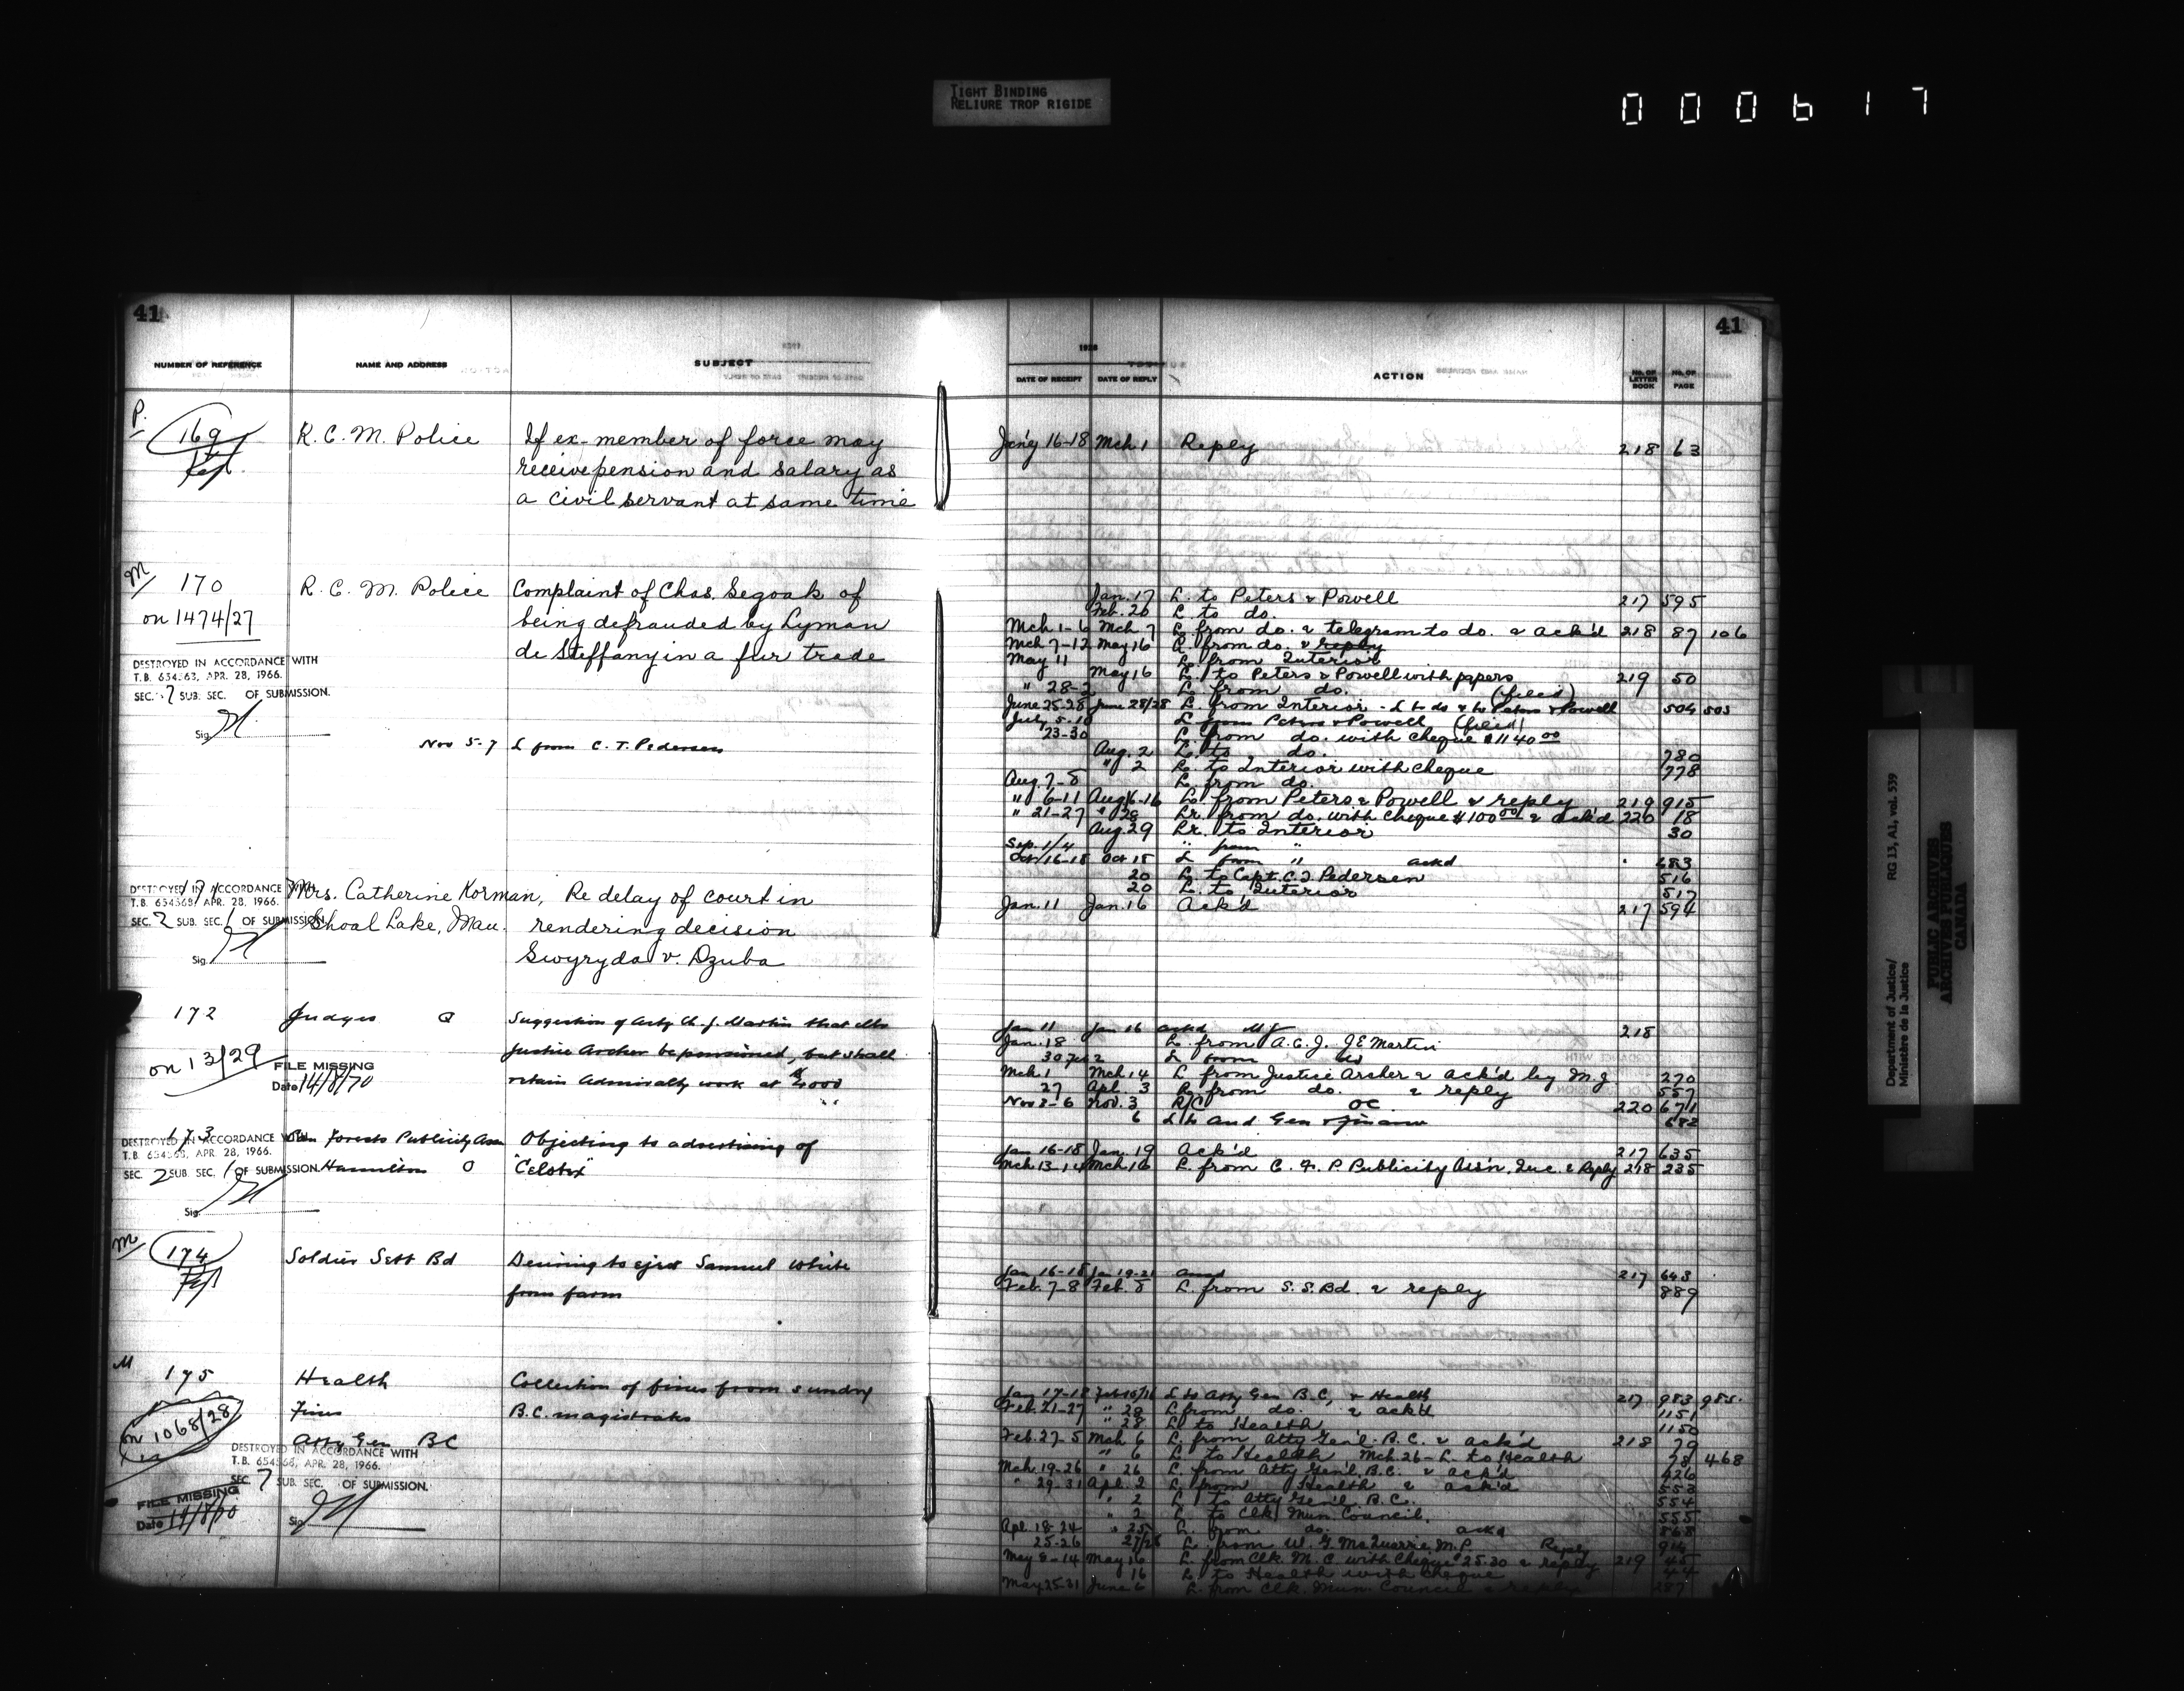 TIGHT BINDING
RELIURE TROP RIGIDE
000617
41
NUMBER OF REFERENCE NAME AND ADDRESS SUBJECT
P.
169 R. C. M. Police If ex-member of force may
receive pension and salary as
a civil servant at same time
M
170 R. C. M. Police Complaint of Chas. Segoak of
on 1474/27 being defrauded by Lyman
de Steffany in a fur trade
DESTROYED IN ACCORDANCE WITH
T.B. 654563, APR. 28, 1966.
SEC. 7 SUB. SEC. OF SUBMISSION.
Sig.
Nov 5-7 L from C. T. Pedersen
171 Mrs. Catherine Korman, Re delay of court in
DESTROYED IN ACCORDANCE WITH
T.B. 654568, APR. 28, 1966.
SEC. 2 SUB. SEC. 1 OF SUBMISSION
Shoal Lake, Man. rendering decision
Sig. Gwyryda v. Dzuba
172 Judges Suggestion of Actg Ch. J. Martin that
on 13/29 Justice Archer be pensioned, but shall
FILE MISSING
Date 14/8/70 retain Admiralty work at $4000
173 Forests Publicity Assn Objecting to advertising of
DESTROYED IN ACCORDANCE WITH
T.B. 654568, APR. 28, 1966.
SEC. 2 SUB. SEC. 1 OF SUBMISSION
Hamilton O "Celotex"
Sig.
M
174 Soldier Sett Bd Desiring to eject Samuel White
from farm
M
175 Health Collection of fines from sundry
on 1068/28 Fines B.C. magistrates
Atty Gen BC
DESTROYED IN ACCORDANCE WITH
T.B. 654568, APR. 28, 1966.
SEC. 7 SUB. SEC. OF SUBMISSION.
FILE MISSING
Date 14/8/70
Sig.
41
1928
DATE OF RECEIPT DATE OF REPLY ACTION NO. OF LETTER BOOK NO. OF PAGE
Jan'y 16-18 Mch 1 Reply 218 63
Jan. 17 L. to Peters & Powell 217 595
Feb. 20 L to do.
Mch 1-6 Mch 7 L from do. & telegram to do. & ack'd 218 87 106
Mch 7-12 May 16 L from do. & reply
May 11 L. from Interior
May 16 L. to Peters & Powell with papers 219 50
" 28-2 L. from do. (filed)
June 25-28 June 28/28 L. from Interior - L to do & to Peters & Powell 504 505
July 5-10 L from Peters & Powell (filed)
23-30 L from do. with cheque $1140.00
Aug. 2 L. to do. 780
" 2 L. to Interior with cheque 778
Aug. 7-8 L. from do.
" 6-11 Aug 16-16 L. from Peters & Powell & reply 219 915
" 21-27 " 28 Lr. from do. with cheque $100.00 & ack'd 220 18
Aug. 29 Lr. to Interior 30
Sep. 1/4 " from "
Oct 16-18 Oct 18 L from " ackd 483
20 L. to Capt. C. T. Pedersen 516
20 L. to Interior 517
Jan. 11 Jan. 16 Ack'd 217 594
Jan 11 Jan 16 ackd MJ 218
Jan. 18 L. from A.C.J. J E Martin
30 Feb 2 L from do
Mch. 1 Mch. 14 L. from Justice Archer & ack'd by M.J. 270
27 Apl. 3 L. from do. & reply 557
Nov 2-6 Nov. 3 R/C OC 220 671
6 L to Aud Gen & Finance 682
Jan 16-18 Jan. 19 Ack'd 217 635
Mch. 13-14 Mch 16 L. from C. F. P. Publicity Ass'n, Inc. & Reply 218 235
Jan 16-18 Jan 19-21 ackd 217 643
Feb. 7-8 Feb. 8 L. from S. S. Bd. & reply 889
Jan 17-18 Feb 15/16 L to Atty Gen B.C. & Health 217 983 985
Feb. 21-27 " 28 L. from do. & ack'd 1151
" 28 L. to Health 1150
Feb. 27-5 Mch 6 L. from Atty Gen'l. B.C. & ack'd 218 79
" 6 L to Health Mch 26 - L. to Health 78 468
Mch. 19-26 " 26 L from Atty Gen'l. B.C. & ack'd 426
" 29-31 Apl. 2 L. from Health & ack'd 553
" 2 L. to Atty Gen'l. B.C. 554
" 2 L. to Clk Mun Council. 555
Apl. 18-24 " 25 L. from do. ackd 868
25-26 27/28 L. from W. G. McQuarrie M.P. Reply
May 8-14 May 16 L. from Clk. M. C. with cheque $25.30 & reply 219 45
16 L. to Health with cheque 44
May 25-31 June 6 L. from Clk. Mun. Council & reply 287
Department of Justice/
Ministère de la Justice
RG 13, A1, vol. 539
PUBLIC ARCHIVES
ARCHIVES PUBLIQUES
CANADA